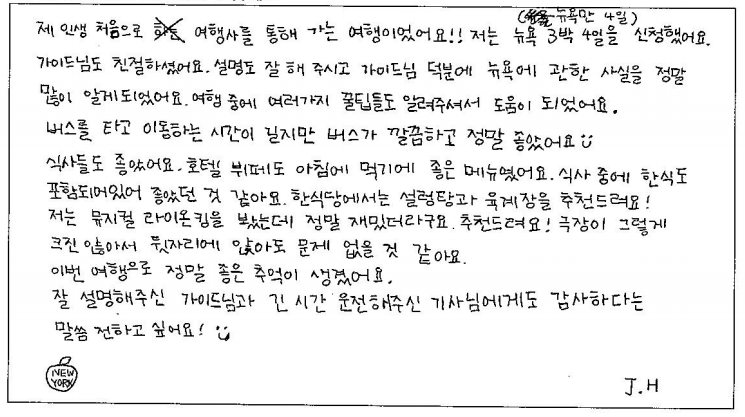 (뉴욕만 4일)
제 인생 처음으로 여행사를 통해 가는 여행이었어요!! 저는 뉴욕 3박 4일을 신청했어요.
가이드님도 친절하셨어요. 설명도 잘 해 주시고 가이드님 덕분에 뉴욕에 관한 사실을 정말
많이 알게되었어요. 여행 중에 여러가지 꿀팁들도 알려주셔서 도움이 되었어요.
버스를 타고 이동하는 시간이 길지만 버스가 깔끔하고 정말 좋았어요
식사들도 좋았어요. 호텔 뷔페도 아침에 먹기에 좋은 메뉴였어요. 식사 중에 한식도
포함되어있어 좋았던 것 같아요. 한식당에서는 설렁탕과 육계장을 추천드려요!
저는 뮤지컬 라이온킹을 봤는데 정말 재밌더라구요. 추천드려요! 극장이 그렇게
크진 않아서 뒷자리에 앉아도 문제 없을 것 같아요.
이번 여행으로 정말 좋은 추억이 생겼어요.
잘 설명해주신 가이드님과 긴 시간 운전해주신 기사님에게도 감사하다는
말씀 전하고 싶어요!
NEW
YORK
J.H